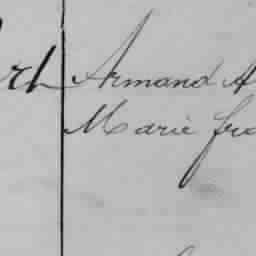 Armand A
Marie fra